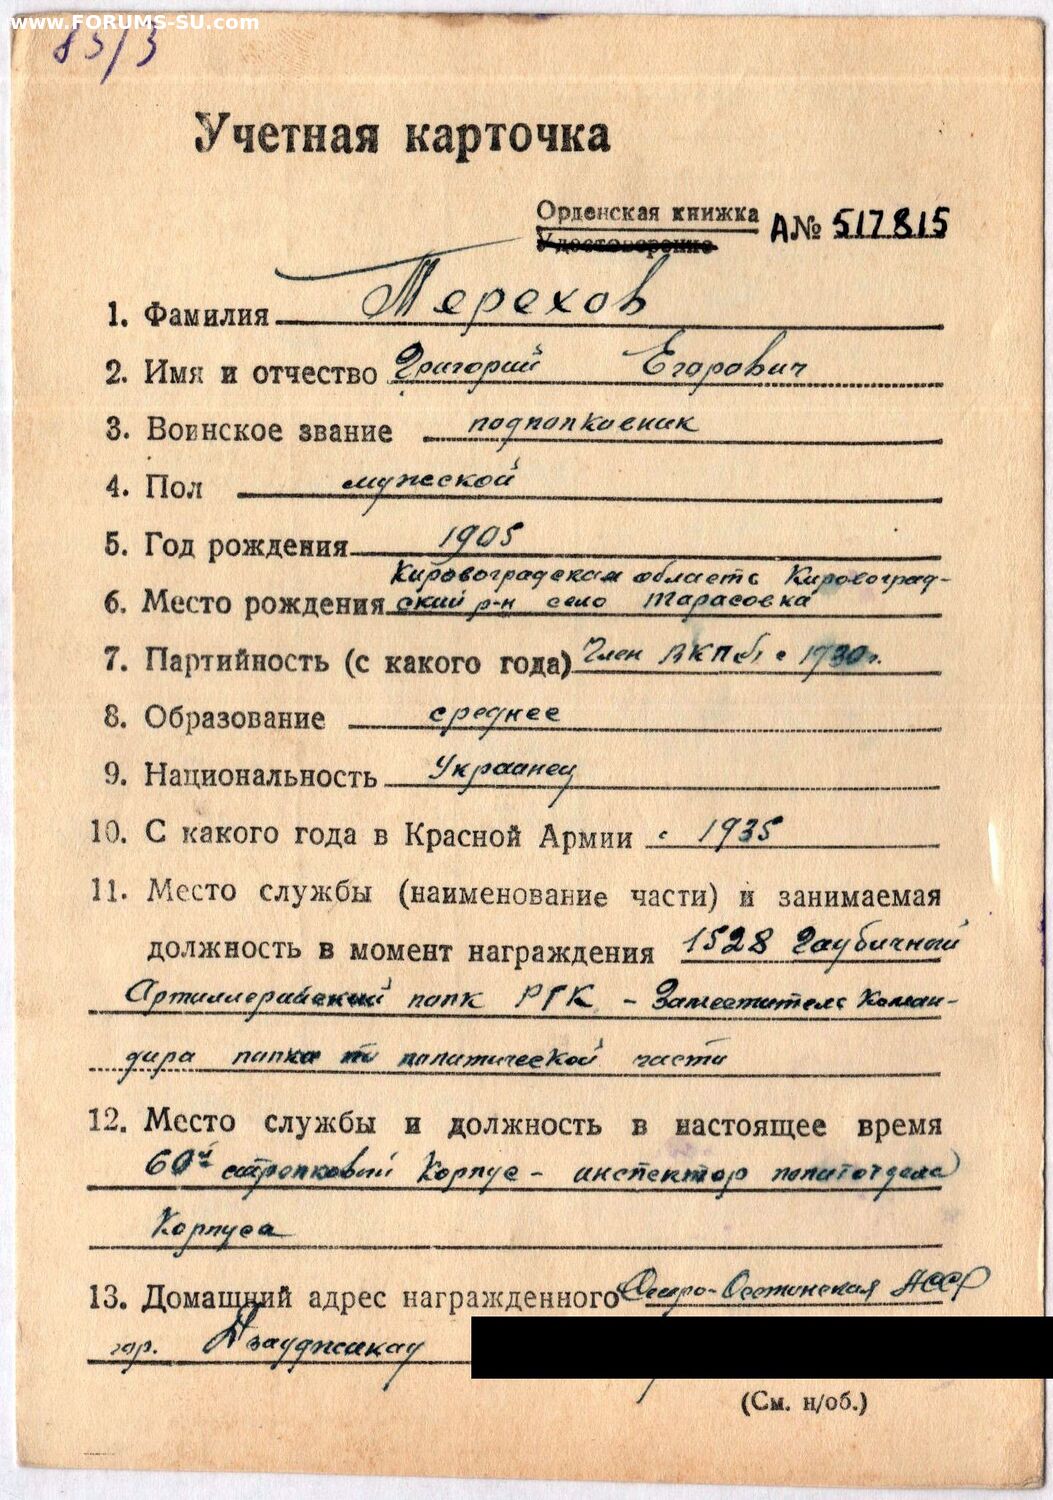 www.FORUMS-SU.com
83/3
Учетная карточка
Орденская книжка
Удостоверение
А № 517815
1. Фамилия Терехов
2. Имя и отчество Григорий Егорович
3. Воинское звание подполковник
4. Пол мужской
5. Год рождения 1905
Кировоградская область Кировоград-
6. Место рождения ский р-н село Тарасовка
7. Партийность (с какого года) Член ВКПб с 1930 г.
8. Образование среднее
9. Национальность Украинец
10. С какого года в Красной Армии с 1935
11. Место службы (наименование части) и занимаемая
должность в момент награждения 1528 Гаубичный
Артиллерийский полк РГК – Заместитель Коман-
дира полка по политической части
12. Место службы и должность в настоящее время
60й стрелковый Корпус – инспектор политотдела
Корпуса
13. Домашний адрес награжденного Северо-Осетинская АССР
гор. Дзауджикау
(См. н/об.)